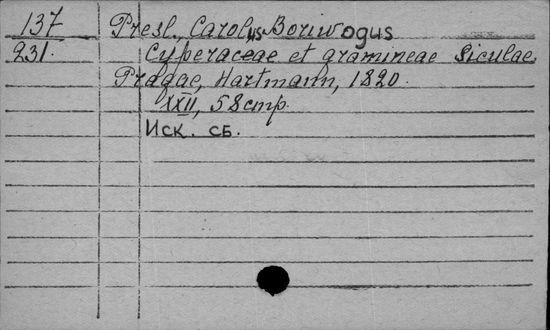 137 Presl, Carolus Boriwogus
231. Cyperaceae et gramineae siculae.
Pragae, Hartmann, 1820.
XXII, 58 стр.
Иск. сб.